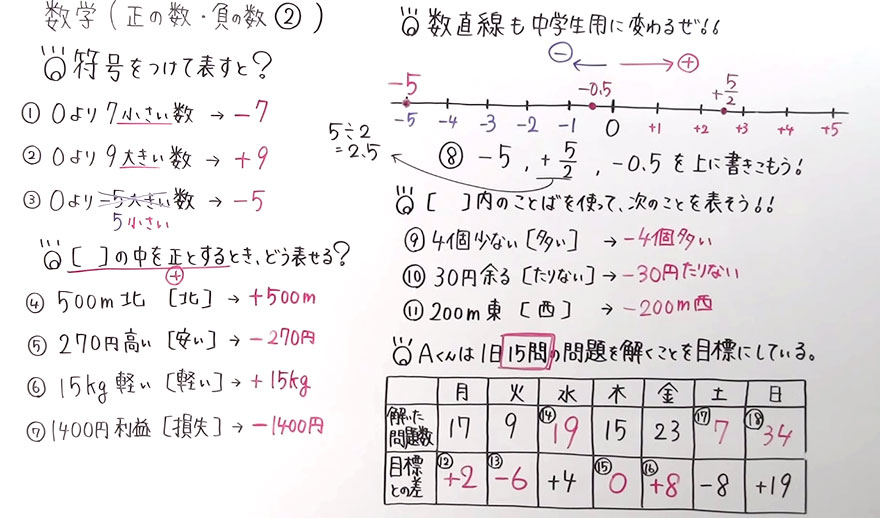 数学(正の数・負の数②)
符号をつけて表すと?
① 0より7小さい数 → -7
② 0より9大きい数 → +9
③ 0より-5大きい数 → -5
5小さい
[ ]の中を正とするとき、どう表せる?
+
④ 500m北 [北] → +500m
⑤ 270円高い [安い] → -270円
⑥ 15kg軽い [軽い] → +15kg
⑦ 1400円利益 [損失] → -1400円
数直線も中学生用に変わるぜ!!
- ← → +
-5 -0.5 +5/2
-5 -4 -3 -2 -1 0 +1 +2 +3 +4 +5
5÷2
=2.5
⑧ -5, +5/2, -0.5を上に書きこもう!
[ ]内のことばを使って、次のことを表そう!!
⑨ 4個少ない [多い] → -4個多い
⑩ 30円余る [たりない] → -30円たりない
⑪ 200m東 [西] → -200m西
Aくんは1日15問の問題を解くことを目標にしている。
月 火 水 木 金 土 日
解いた問題数 17 9 ⑭19 15 23 ⑰7 ⑱34
目標との差 ⑫+2 ⑬-6 +4 ⑮0 ⑯+8 -8 +19